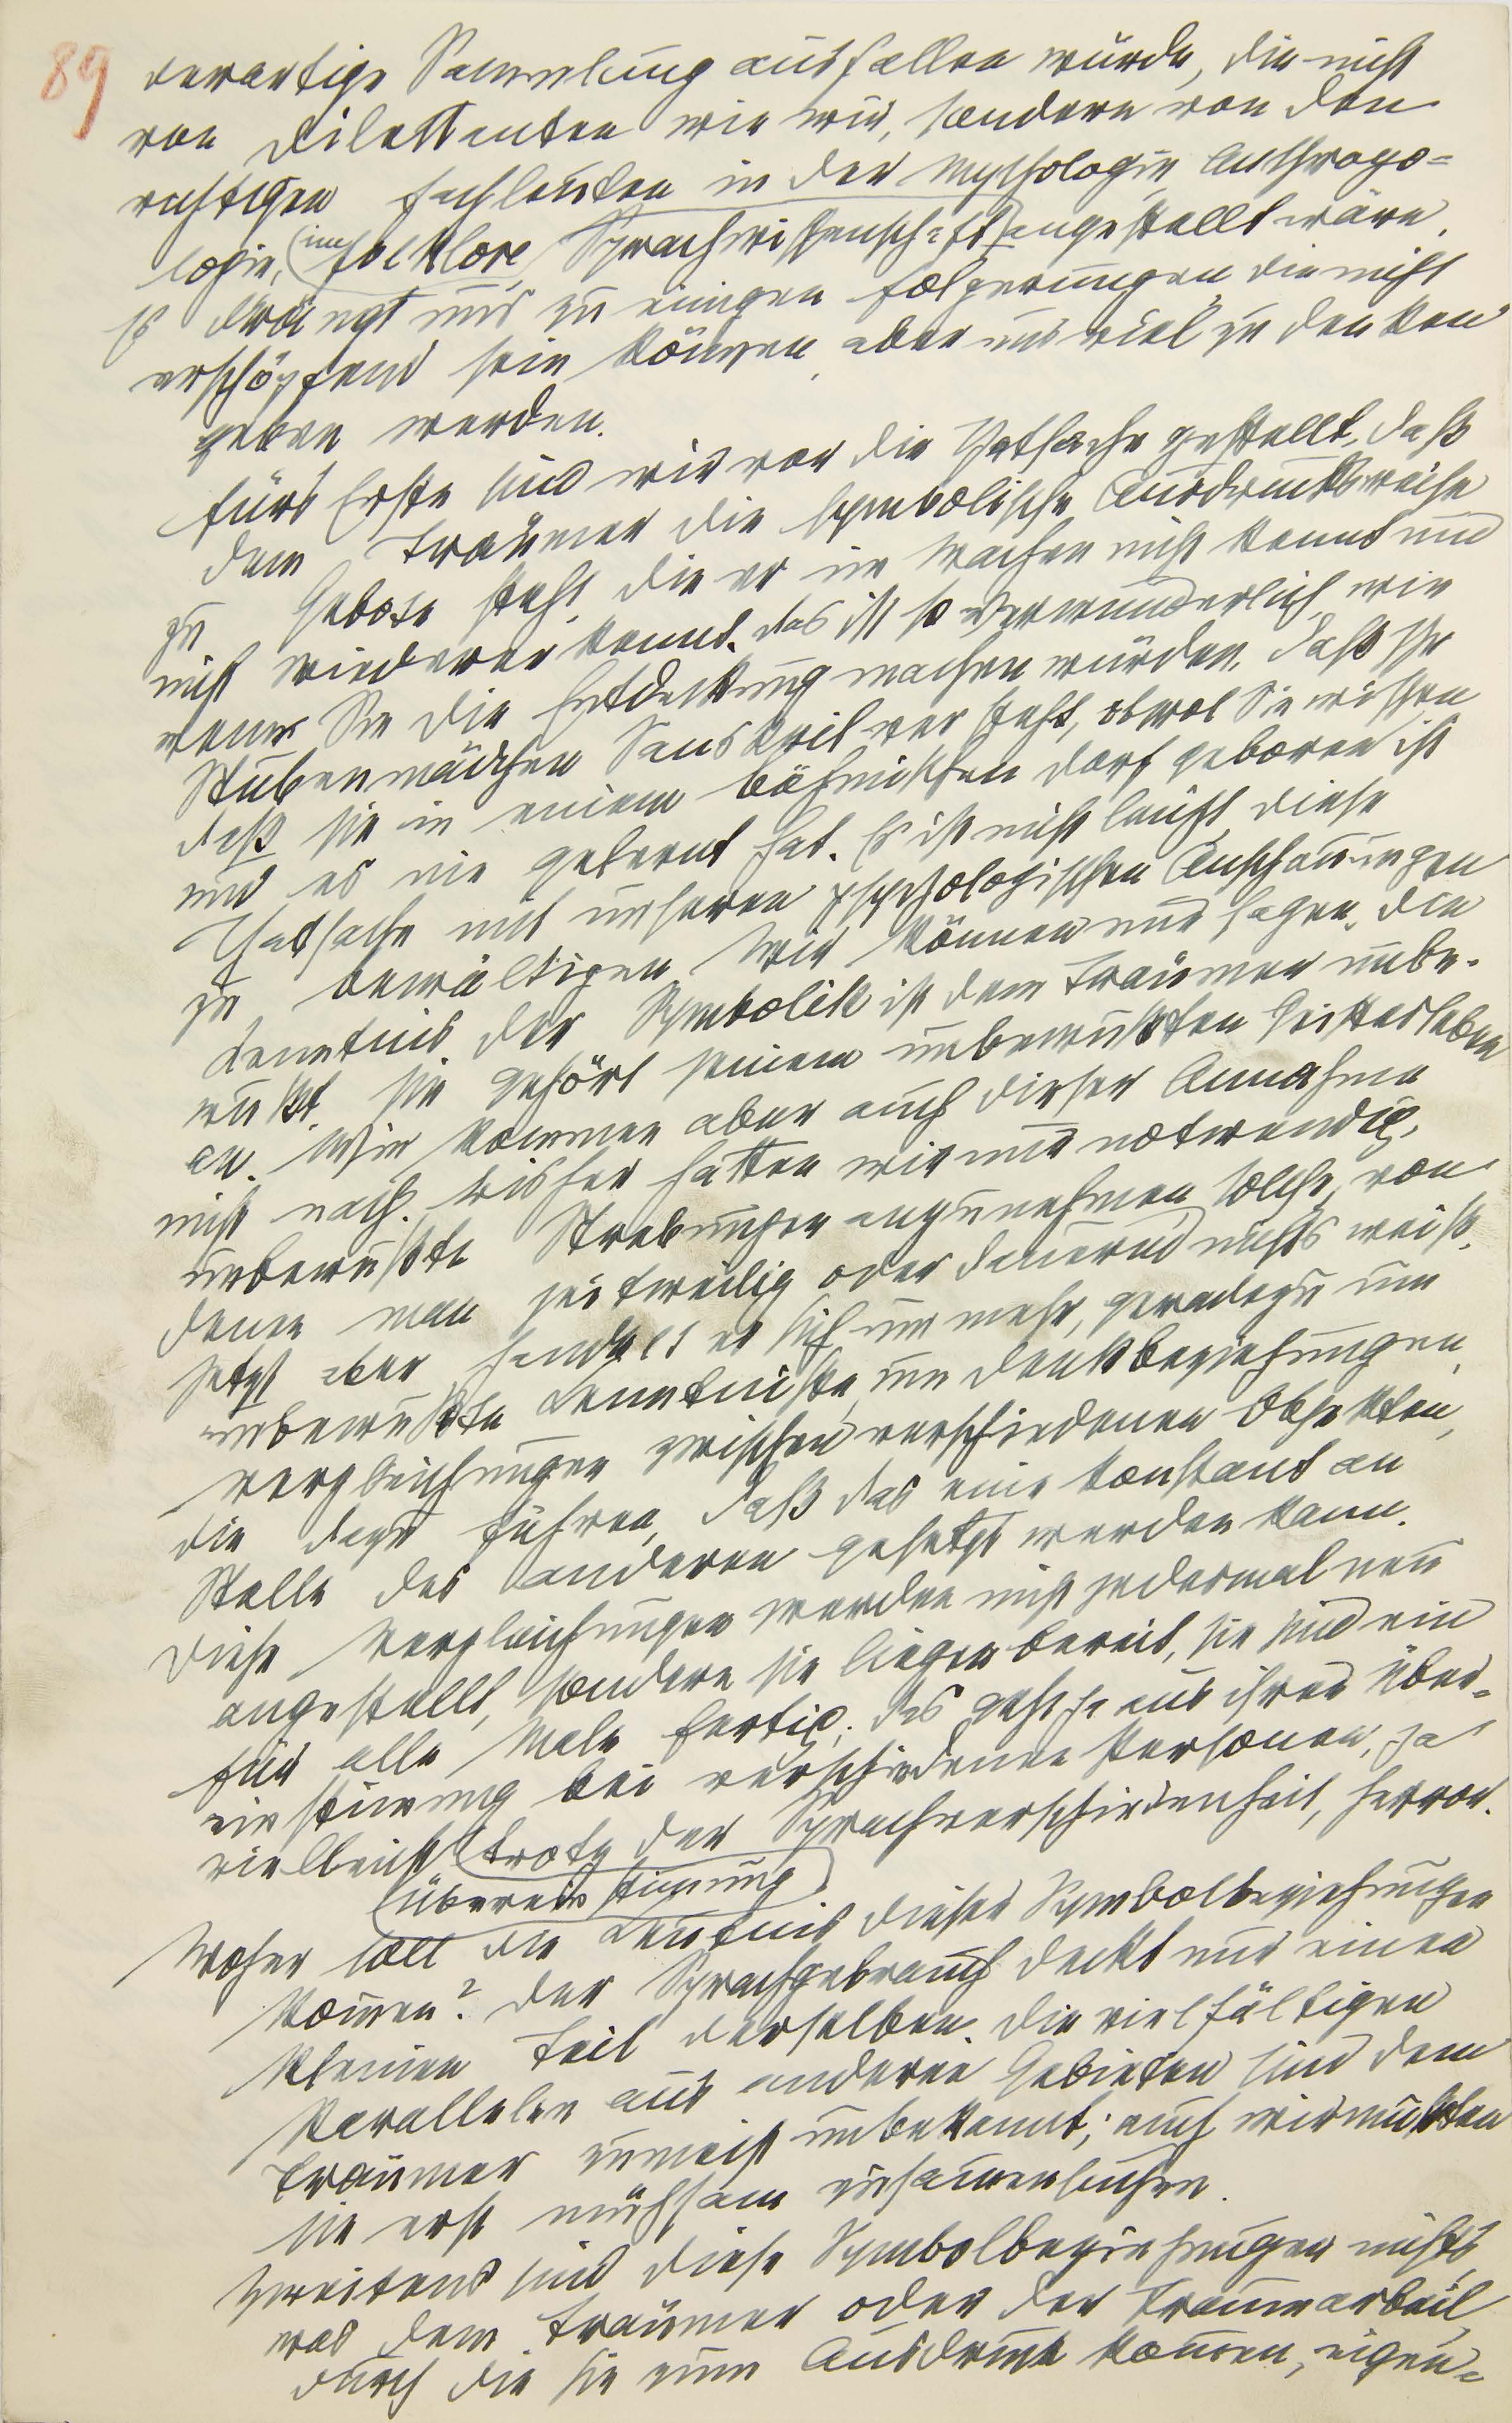 89
derartige Sammlung ausfallen würde, die nicht
von Dilettanten wie wir, sondern von den
richtigen Fachleuten in der Mythologie, Anthropo=
logie, (im Folklore, Sprachwissenschaft) angestellt wäre.
Es drängt uns zu einigen Folgerungen, die nicht
erschöpfend sein können, aber uns viel zu denken
geben werden.
Fürs Erste sind wir vor die Thatsache gestellt, daß
dem Träumer die symbolische Ausdrucksweise
zu Gebote steht, die er im Wachen nicht kennt und
nicht wiedererkennt. Das ist so verwunderlich, wie
wenn Sie die Entdeckung machen würden, daß Ihr
Stubenmädchen Sanskrit versteht, obwol Sie wissen
daß sie in einem böhmischen Dorf geboren ist
und es nie gelernt hat. Es ist nicht leicht, diese
Thatsache mit unseren psychologischen Anschauungen
zu bewältigen. Wir können nur sagen, die
Kenntnis der Symbolik ist dem Träumer unbe-
wußt, sie gehört seinem unbewußten Geistesleben
an. Wir kommen aber auch dieser Annahme
nicht nach. Bisher hatten wir nur notwendig,
unbewußte Strebungen anzunehmen, solche, von
denen man zeitweilig oder dauernd nichts weiß.
Jetzt aber handelt es sich um mehr, geradezu um
unbewußte Kenntnisse, um Denkbeziehungen,
Vergleichungen zwischen verschiedenen Objekten,
die dazu führen, daß das eine konstant an
Stelle des anderen gesetzt werden kann.
Diese Vergleichungen werden nicht jedesmal neu
angestellt, sondern sie liegen bereit, sie sind ein
für alle Male fertig; das geht ja aus ihrer Über-
einstimmung bei verschiedenen Personen, ja
vielleicht (trotz der Sprachverschiedenheit, hervor.
(Übereinstimmung)
Woher soll die Kenntnis dieser Symbolbeziehungen
kommen? Der Sprachgebrauch deckt nur einen
kleinen Teil derselben. Die vielfältigen
Parallelen aus anderen Gebieten sind dem
Träumer zumeist unbekannt; auch wir mußten
sie erst mühsam zusammensuchen.
Zweitens sind diese Symbolbeziehungen nichts,
was dem Träumer oder der Traumarbeit,
durch die sie zum Ausdruck kommen, eigen=